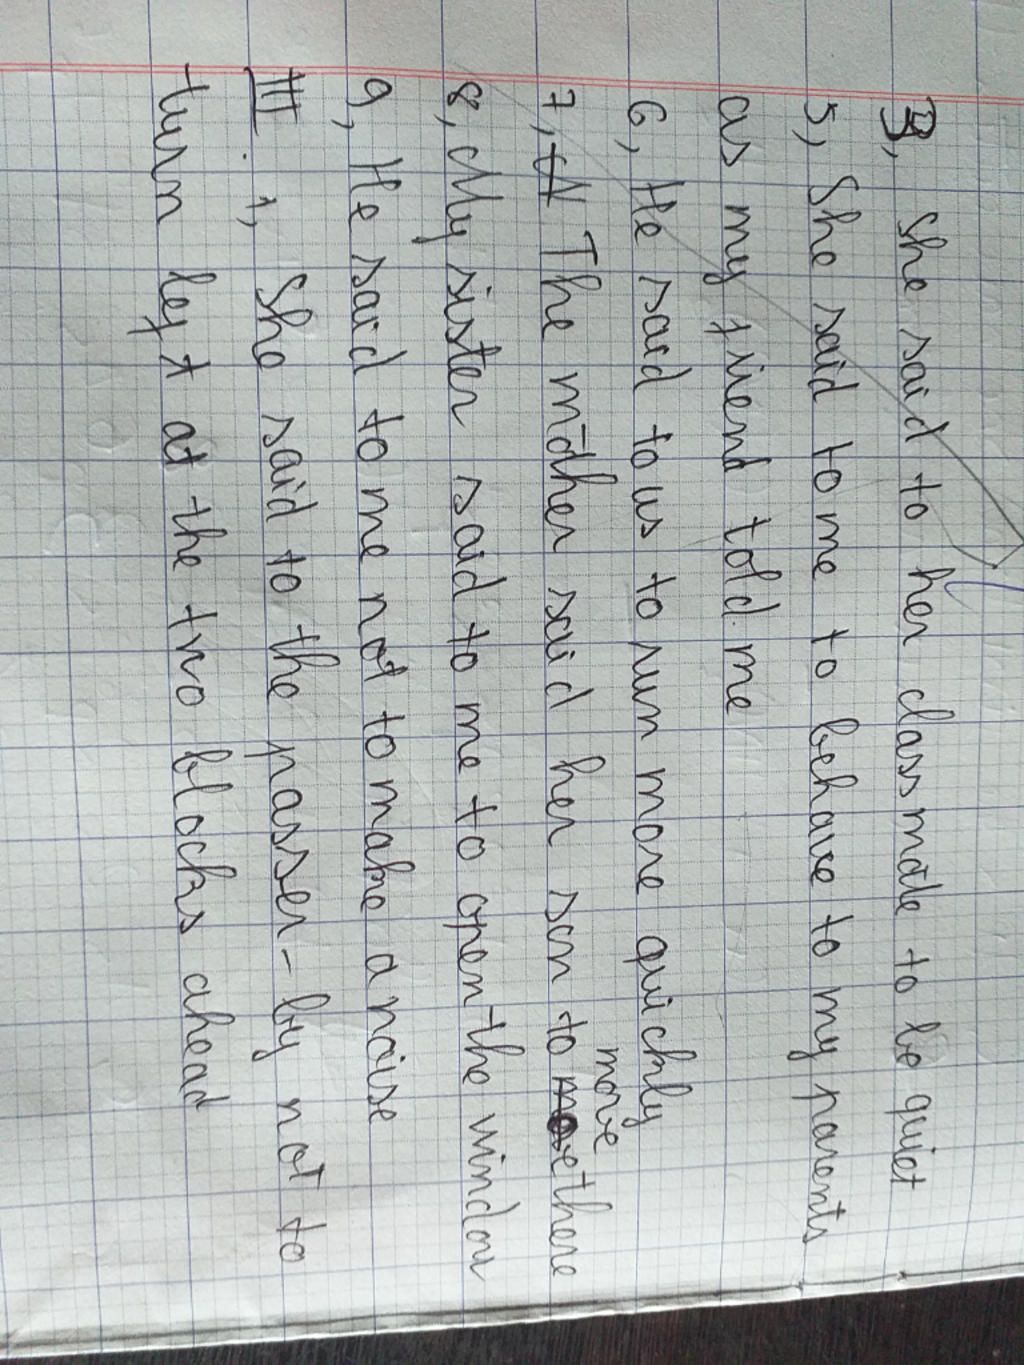 3, She said to her classmate to be quiet
5, She said to me to behave to my parents
as my friend told me
6, He said to us to run more quickly
move
7, The mother said her son to there
8, My sister said to me to open the window
9, He said to me not to make a noise
III. 1, She said to the passer-by not to
turn left at the two blocks ahead